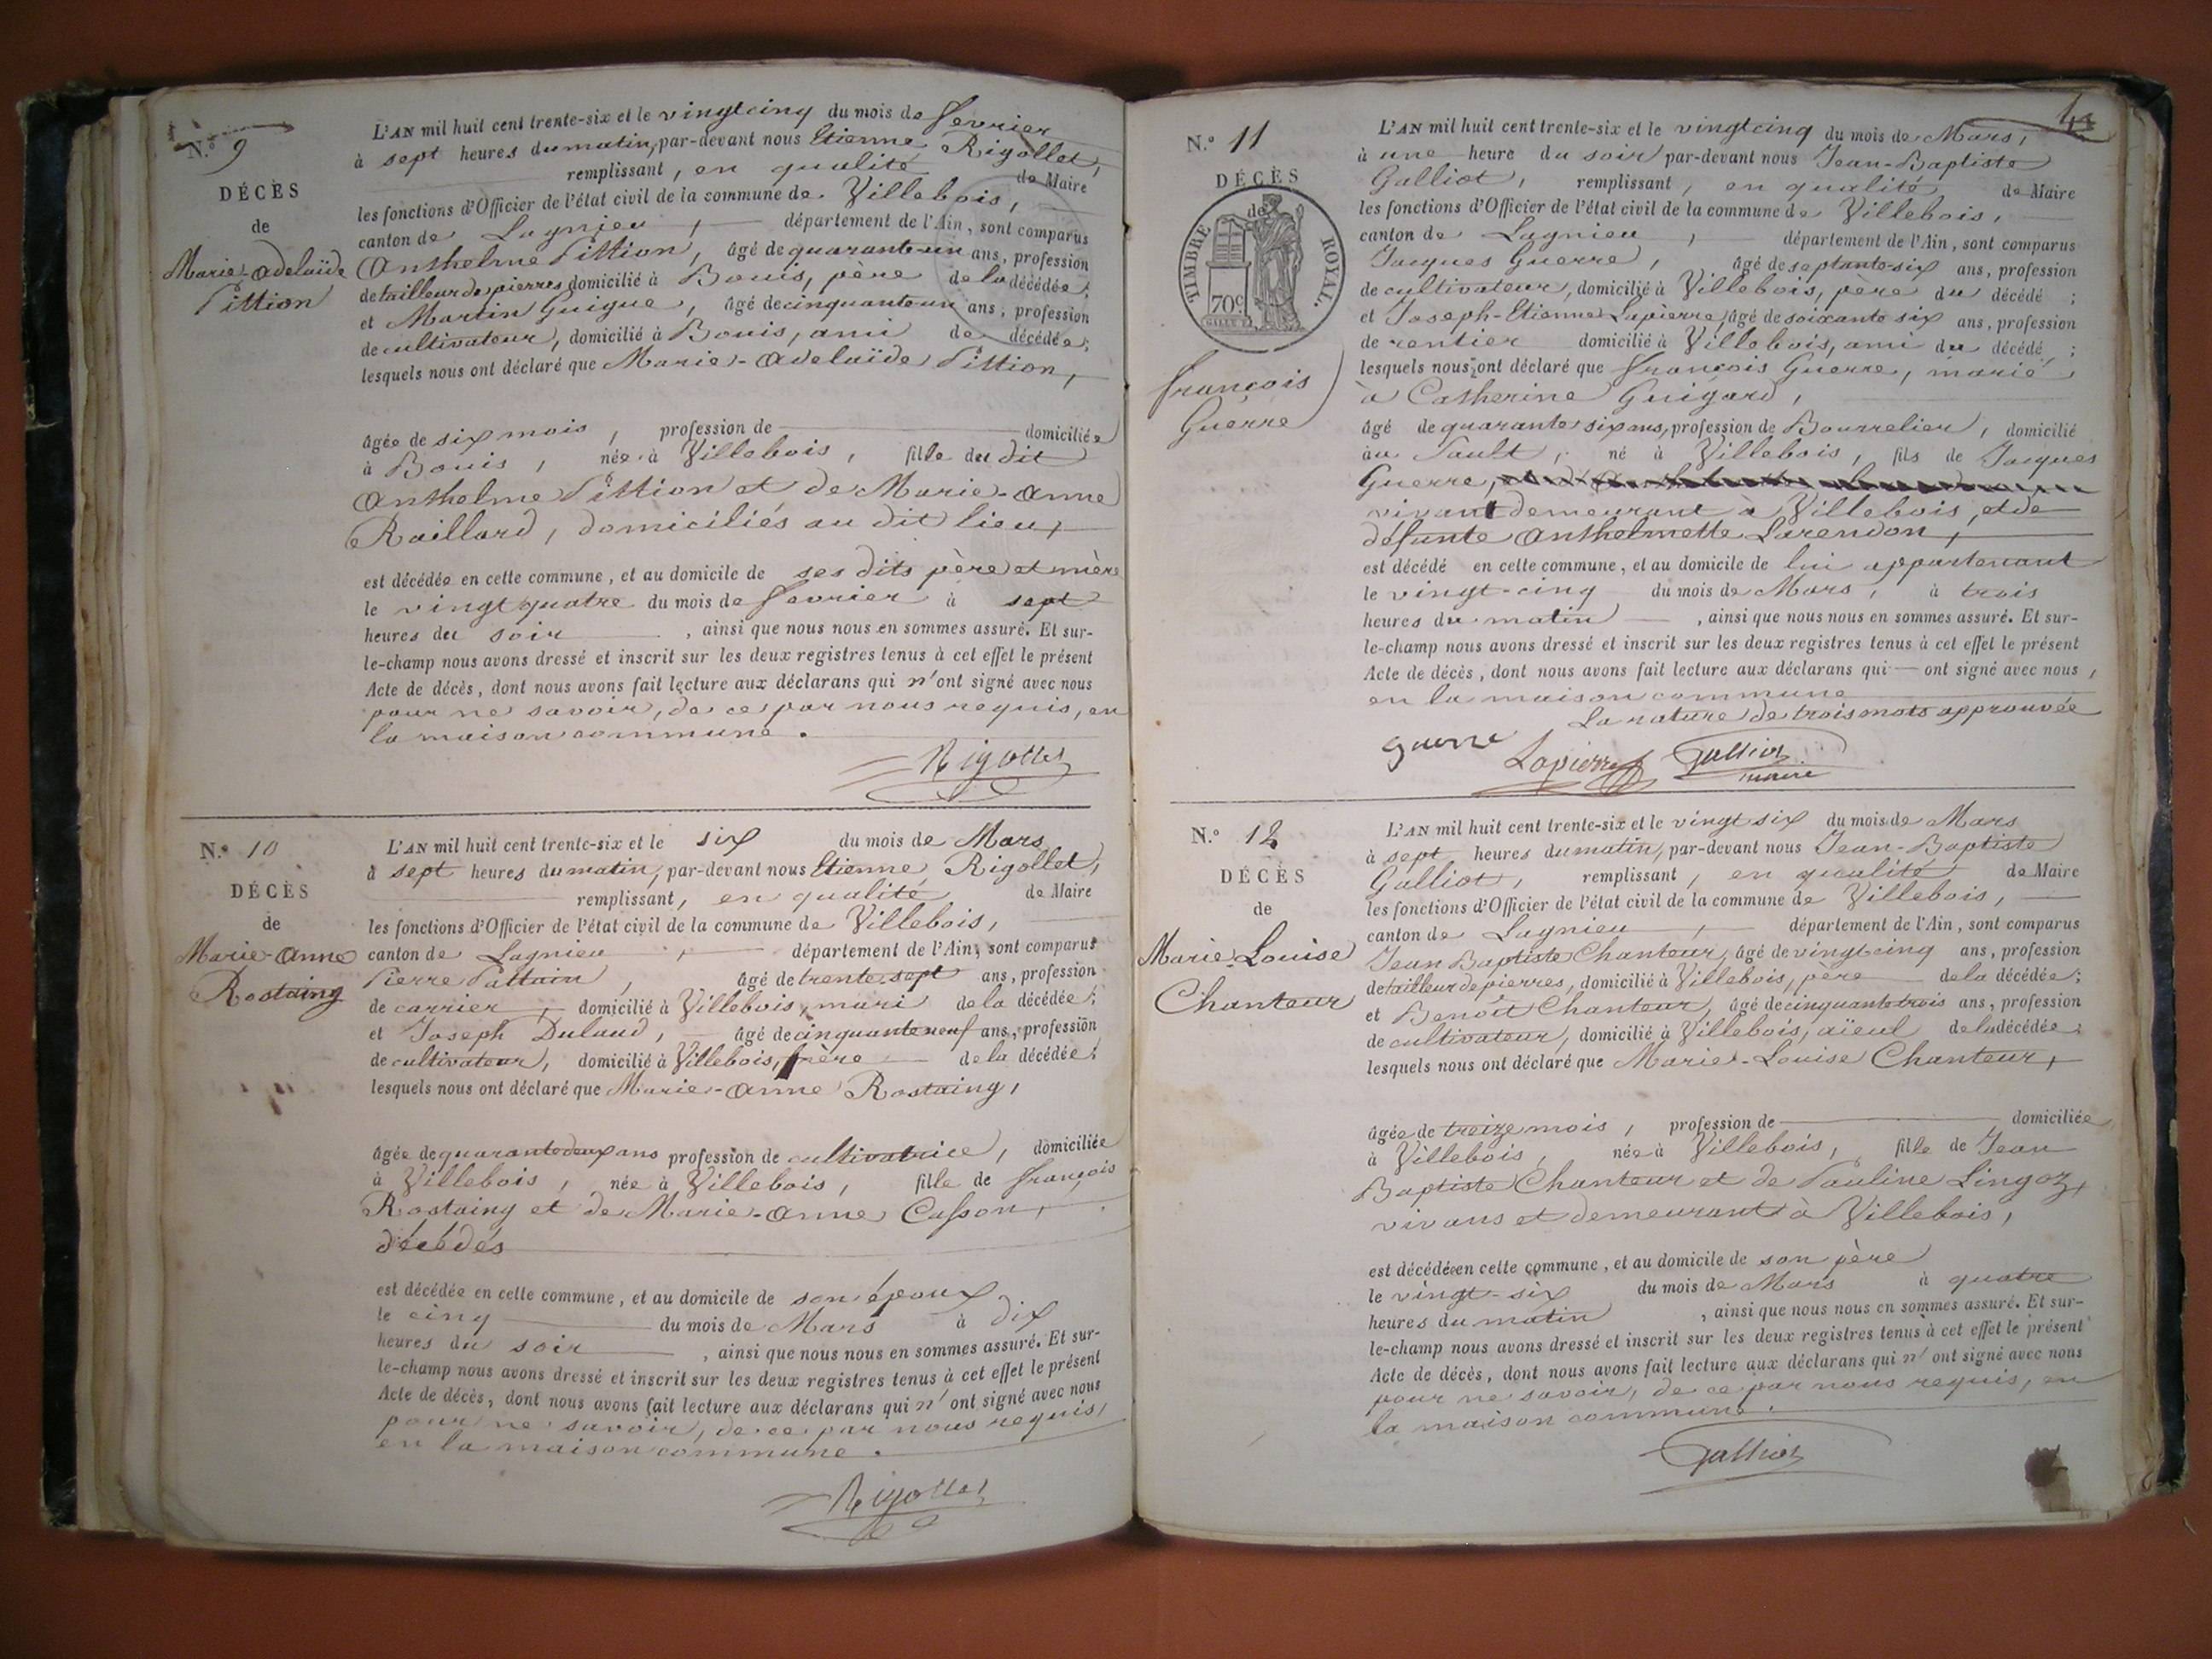 N.º 9
DÉCÈS
de
Marie-Adelaïde
Pittion
L'AN mil huit cent trente-six et le vingt cinq du mois de fevrier
à sept heures du matin, par-devant nous Etienne Rigollet,
remplissant, en qualité de Maire
les fonctions d'Officier de l'état civil de la commune de Villebois,
canton de Lagnieu, département de l'Ain, sont comparus
Anthelme Pittion, âgé de quarante-un ans, profession
de tailleur de pierres domicilié à Bouis, père de la décédée;
et Martin Guigue, âgé de cinquante un ans, profession
de cultivateur, domicilié à Bouis, ami de décédée;
lesquels nous ont déclaré que Marie-Adelaïde Pittion,
âgée de six mois, profession de domiciliée
à Bouis, née à Villebois, fille du dit
Anthelme Pittion et de Marie-Anne
Raillard, domiciliés au dit lieu,
est décédée en cette commune, et au domicile de ses dits père et mère
le vingt quatre du mois de fevrier à sept
heures du soir, ainsi que nous nous en sommes assuré. Et sur-
le-champ nous avons dressé et inscrit sur les deux registres tenus à cet effet le présent
Acte de décès, dont nous avons fait lecture aux déclarans qui n'ont signé avec nous
pour ne savoir, de ce par nous requis, en
la maison commune.
Rigollet
N.º 10
DÉCÈS
de
Marie-Anne
Rostaing
L'AN mil huit cent trente-six et le six du mois de Mars
à sept heures du matin, par-devant nous Etienne Rigollet,
remplissant, en qualité de Maire
les fonctions d'Officier de l'état civil de la commune de Villebois,
canton de Lagnieu, département de l'Ain, sont comparus
Pierre Pattain, âgé de trente sept ans, profession
de carrier, domicilié à Villebois, mari de la décédée;
et Joseph Dulaud, âgé de cinquante neuf ans, profession
de cultivateur, domicilié à Villebois, frère de la décédée;
lesquels nous ont déclaré que Marie-Anne Rostaing,
âgée de quarante deux ans profession de cultivatrice, domiciliée
à Villebois, née à Villebois, fille de françois
Rostaing et de Marie-Anne Casson,
décédés
est décédée en cette commune, et au domicile de son époux
le cinq du mois de Mars à dix
heures du soir, ainsi que nous nous en sommes assuré. Et sur-
le-champ nous avons dressé et inscrit sur les deux registres tenus à cet effet le présent
Acte de décès, dont nous avons fait lecture aux déclarans qui n'ont signé avec nous
pour ne savoir, de ce par nous requis,
en la maison commune.
Rigollet
N.º 11
DÉCÈS
de
TIMBRE ROYAL.
70c
françois
Guerre
L'AN mil huit cent trente-six et le vingt cinq du mois de Mars,
à une heure du soir par-devant nous Jean-Baptiste
Galliot, remplissant, en qualité de Maire
les fonctions d'Officier de l'état civil de la commune de Villebois,
canton de Lagnieu, département de l'Ain, sont comparus
Jacques Guerre, âgé de septante-six ans, profession
de cultivateur, domicilié à Villebois, père du décédé;
et Joseph-Etienne Lapierre, âgé de soixante six ans, profession
de rentier domicilié à Villebois, ami du décédé;
lesquels nous ont déclaré que françois Guerre, marié
à Catherine Guigard,
âgé de quarante six ans, profession de Bourrelier, domicilié
au Sault, né à Villebois, fils de Jacques
Guerre,
vivant demeurant à Villebois, et de
défunte Anthelmette Larendon,
est décédé en cette commune, et au domicile de lui appartenant
le vingt-cinq du mois de Mars, à trois
heures du matin, ainsi que nous nous en sommes assuré. Et sur-
le-champ nous avons dressé et inscrit sur les deux registres tenus à cet effet le présent
Acte de décès, dont nous avons fait lecture aux déclarans qui ont signé avec nous,
en la maison commune
La rature de trois mots approuvée
Guerre
Lapierre Galliot
maire
N.º 12
DÉCÈS
de
Marie-Louise
Chanteur
L'AN mil huit cent trente-six et le vingt six du mois de Mars
à sept heures du matin, par-devant nous Jean-Baptiste
Galliot, remplissant, en qualité de Maire
les fonctions d'Officier de l'état civil de la commune de Villebois,
canton de Lagnieu, département de l'Ain, sont comparus
Jean Baptiste Chanteur, âgé de vingt cinq ans, profession
de tailleur de pierres, domicilié à Villebois, père de la décédée;
et Benoît Chanteur, âgé de cinquante trois ans, profession
de cultivateur, domicilié à Villebois, aïeul de la décédée;
lesquels nous ont déclaré que Marie-Louise Chanteur,
âgée de treize mois, profession de domiciliée
à Villebois, née à Villebois, fille de Jean
Baptiste Chanteur et de Pauline Lingoz,
vivans et demeurant à Villebois,
est décédée en cette commune, et au domicile de son père
le vingt-six du mois de Mars à quatre
heures du matin, ainsi que nous nous en sommes assuré. Et sur-
le-champ nous avons dressé et inscrit sur les deux registres tenus à cet effet le présent
Acte de décès, dont nous avons fait lecture aux déclarans qui n'ont signé avec nous
pour ne savoir, de ce par nous requis, en
la maison commune.
Galliot